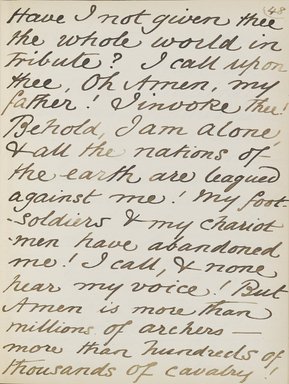 148
Have I not given thee
the whole world in
tribute? I call upon
thee, Oh Amen, my
father! I invoke thee!
Behold, I am alone,
& all the nations of
the earth are leagued
against me! My foot-
-soldiers & my chariot
-men have abandoned
me! I call, & none
hear my voice! But
Amen is more than
millions of archers—
more than hundreds of
thousands of cavalry!